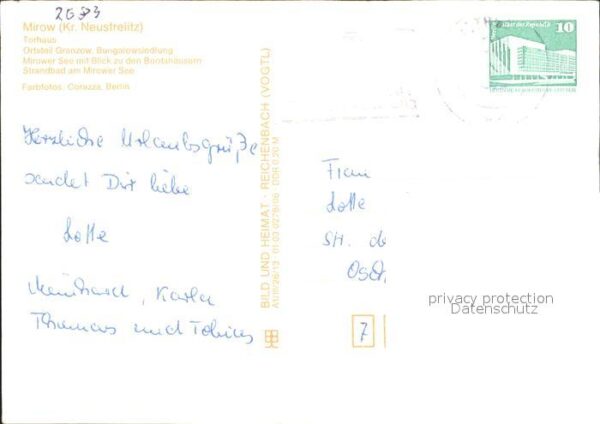 2693
Mirow (Kr. Neustrelitz)
Torhaus
Ortsteil Granzow, Bungalowsiedlung
Mirower See mit Blick zu den Bootshäusern
Strandbad am Mirower See
Farbfotos: Corazza, Berlin
Herzliche Urlaubsgrüße
sendet Dir liebe
Lotte
Meinhard, Karla
Thomas und Tobias
BILD UND HEIMAT · REICHENBACH (VOGTL)
DDR 0,20 M
10
Frau
Lotte
privacy protection
Datenschutz
7